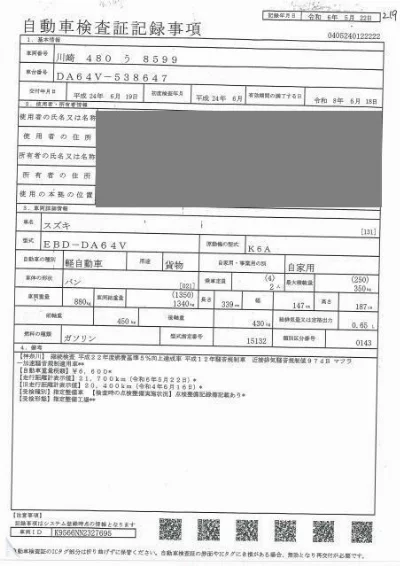 219
自動車検査証記録事項
記録年月日 令和 6年 5月 22日
0405240122222
1. 基本情報
車両番号 川崎 480 う 8599
車台番号 DA64V-538647
交付年月日 平成 24年 6月 19日 初度検査年月 平成 24年 6月 有効期間の満了する日 令和 8年 6月 18日
2. 使用者・所有者情報
使用者の氏名又は名称
使用者の住所
所有者の氏名又は名称
所有者の住所
使用の本拠の位置
3. 車両詳細情報
車名 スズキ [131]
型式 EBD-DA64V 原動機の型式 K6A
自動車の種別 軽自動車 用途 貨物 自家用・事業用の別 自家用
車体の形状 バン [021] 乗車定員 (4) 2人 最大積載量 (250) 350kg
車両重量 880kg 車両総重量 (1350) 1340kg 長さ 339cm 幅 147cm 高さ 187cm
前軸重 450kg 後軸重 430kg 総排気量又は定格出力 0.65 L
燃料の種類 ガソリン 型式指定番号 15132 類別区分番号 0143
4. 備考
【神奈川】 継続検査 平成22年度燃費基準5%向上達成車 平成12年騒音規制車 近接排気騒音規制値97dB マフラ
ー加速騒音規制適用車**
【自動車重量税額】¥6,600*
【走行距離計表示値】21,700km(令和6年5月22日)*
【旧走行距離計表示値】20,400km(令和4年6月16日)*
【受検種別】指定整備車 【検査時の点検整備実施状況】点検整備記録簿記載あり*
【受検形態】指定整備工場**
【注意事項】
記載事項はシステム登録時点の情報となります
車両ID K9566NN2327695
自動車検査証のICタグ部分は折り曲げずに保管ください。自動車検査証の券面やICタグに き損がある場合、無効となり再交付が必要です。